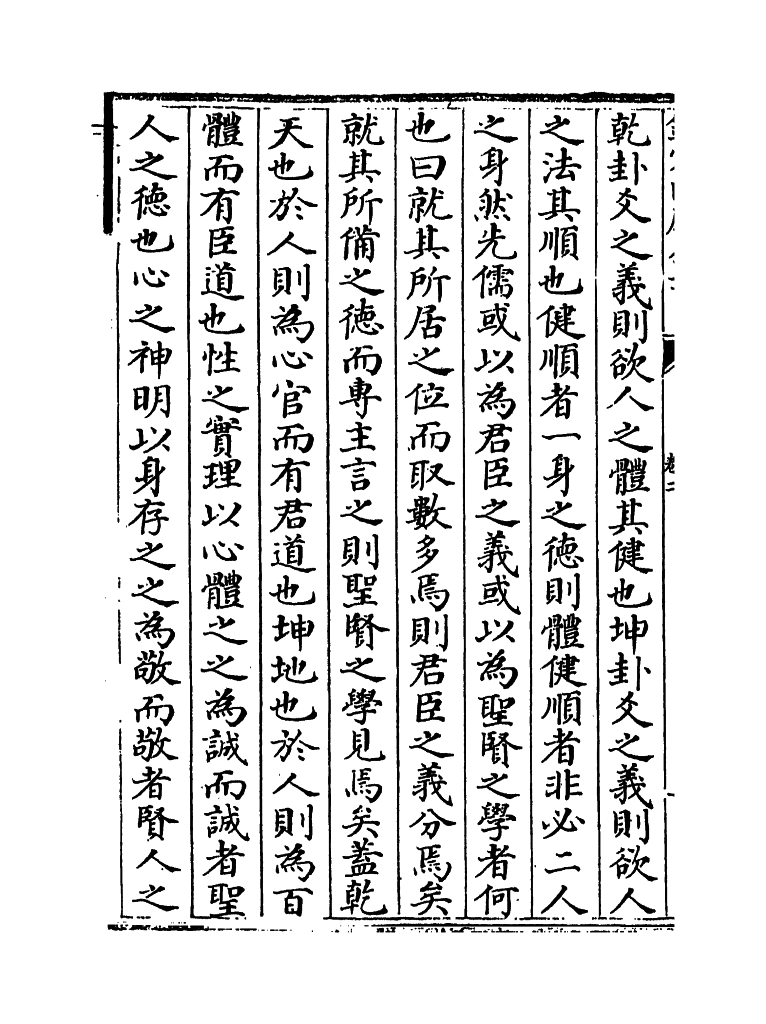 乾卦爻之義則欲人之體其健也坤卦爻之義則欲人
之法其順也健順者一身之德則體健順者非必二人
之身然先儒或以為君臣之義或以為聖賢之學者何
也曰就其所居之位而取數多焉則君臣之義分焉矣
就其所備之德而專主言之則聖賢之學見焉矣蓋乾
天也於人則為心官而有君道也坤地也於人則為百
體而有臣道也性之實理以心體之之為誠而誠者聖
人之德也心之神明以身存之之為敬而敬者賢人之
卷二